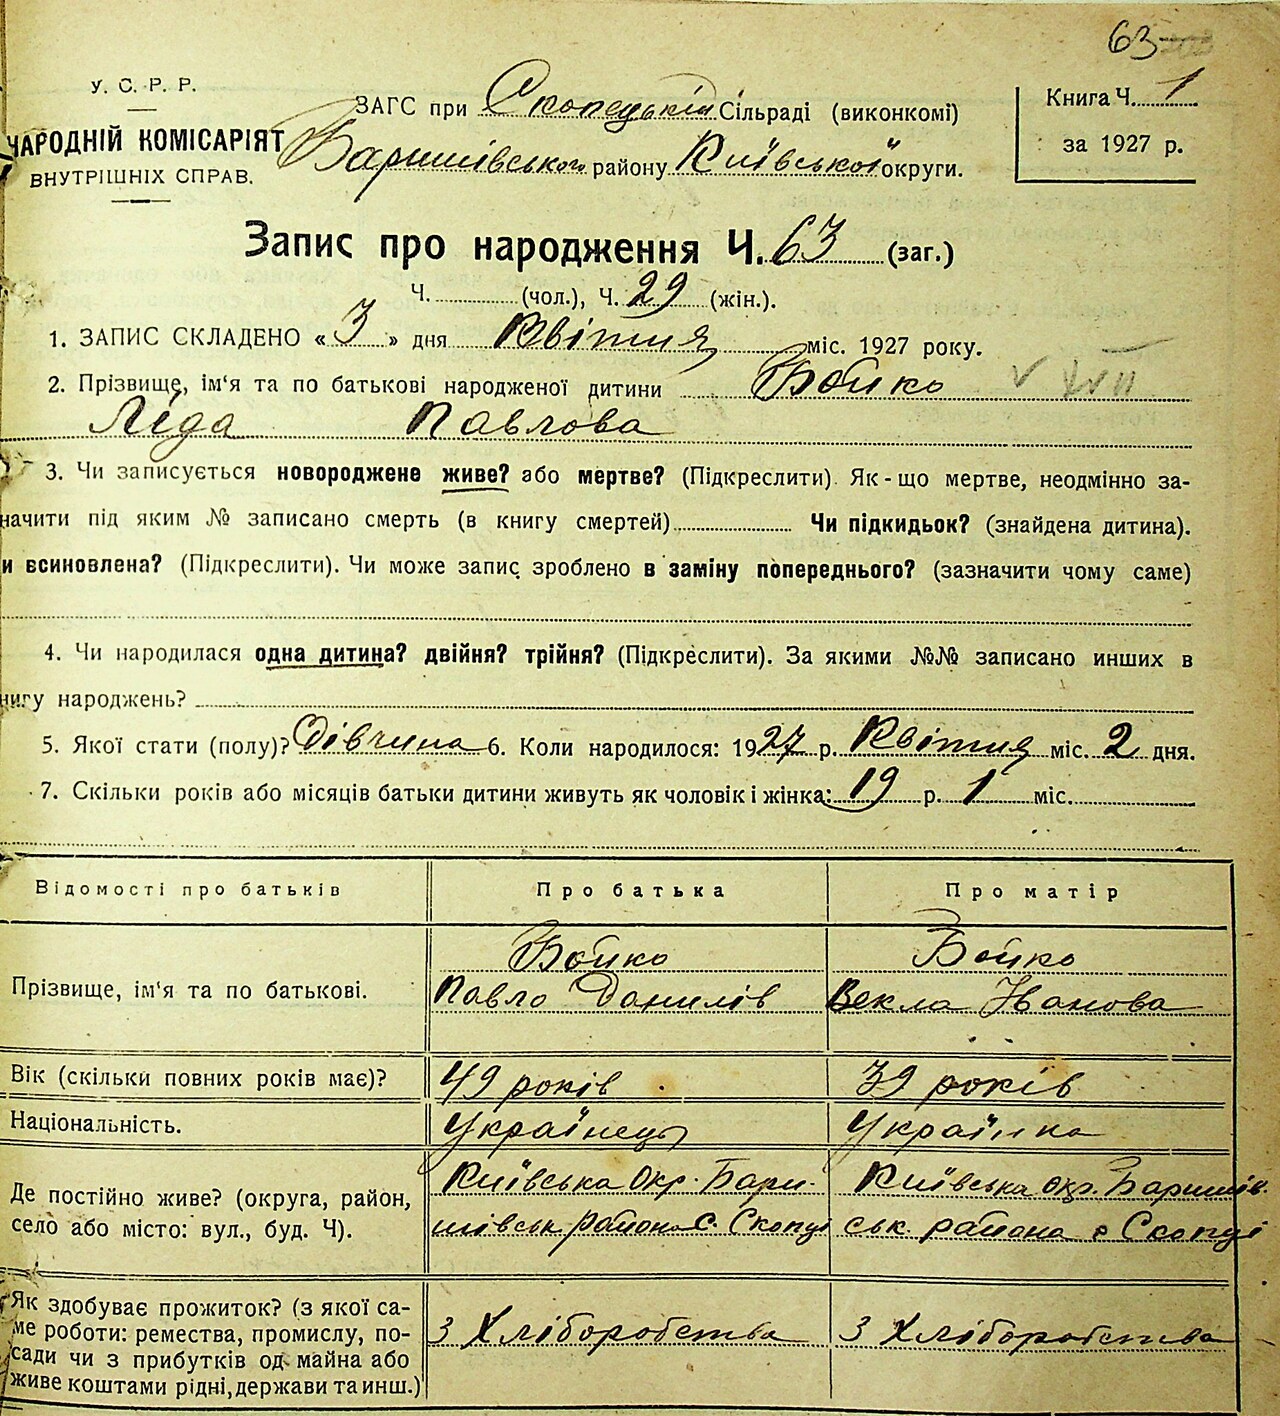 63
У. С. Р. Р.
НАРОДНІЙ КОМІСАРІЯТ
ВНУТРІШНІХ СПРАВ.
ЗАГС при Скопецькій Сільраді (виконкомі)
Баришівського району Київської округи.
Книга Ч. 1
за 1927 р.
Запис про народження Ч. 63 (заг.)
Ч. (чол.), Ч. 29 (жін.).
1. ЗАПИС СКЛАДЕНО « 3 » дня Квітня міс. 1927 року.
2. Прізвище, ім'я та по батькові народженої дитини Бойко
Ліда Павлова
3. Чи записується новороджене живе? або мертве? (Підкреслити). Як-що мертве, неодмінно за-
начити під яким № записано смерть (в книгу смертей) Чи підкидьок? (знайдена дитина).
и всиновлена? (Підкреслити). Чи може запис зроблено в заміну попереднього? (зазначити чому саме)
4. Чи народилася одна дитина? двійня? трійня? (Підкреслити). За якими №№ записано инших в
нигу народжень?
5. Якої стати (полу)? Дівчина 6. Коли народилося: 1927 р. Квітня міс. 2 дня.
7. Скільки років або місяців батьки дитини живуть як чоловік і жінка: 19 р. 1 міс.
Відомості про батьків Про батька Про матір
Прізвище, ім'я та по батькові.
Бойко
Павло Данилів
Бойко
Векла Іванова
Вік (скільки повних років має)? 49 років 39 років
Національність. Українець Українка
Де постійно живе? (округа, район,
село або місто: вул., буд. Ч).
Київська Окр. Бари-
шівськ. района с. Скопці
Київська окр. Баришів-
ськ. района с Скопці
Як здобуває прожиток? (з якої са-
ме роботи: ремества, промислу, по-
сади чи з прибутків од майна або
живе коштами рідні, держави та инш.)
З Хліборобства
З Хліборобства